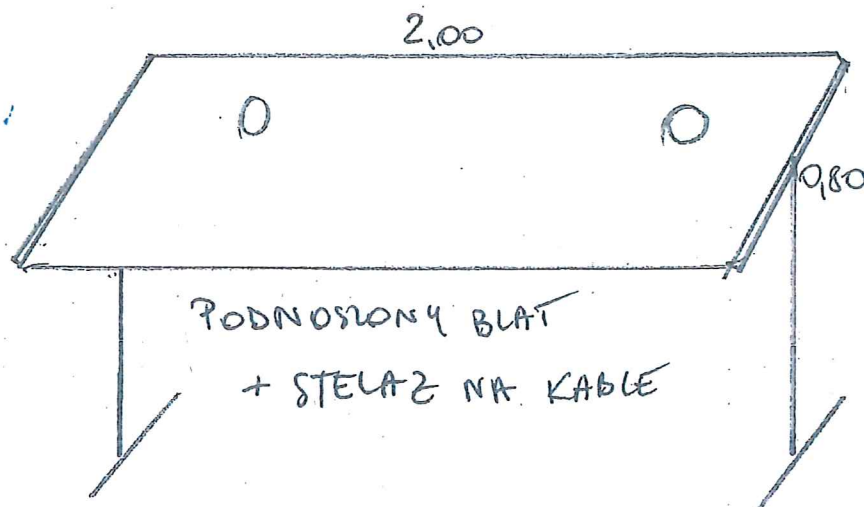 2,00
0,80
PODNOSZONY BLAT
+ STELAZ NA KABLE